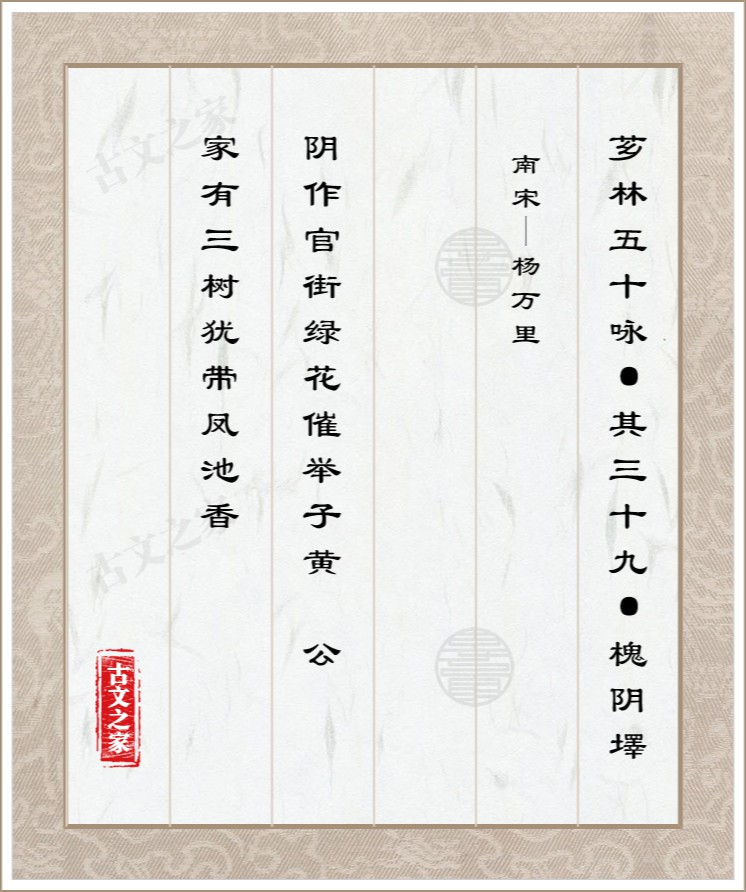 芗林五十咏●其三十九●槐阴墿
南宋—杨万里
阴作官街绿花催举子黄　公
家有三树犹带凤池香
古文之家
古文之家
古文之家